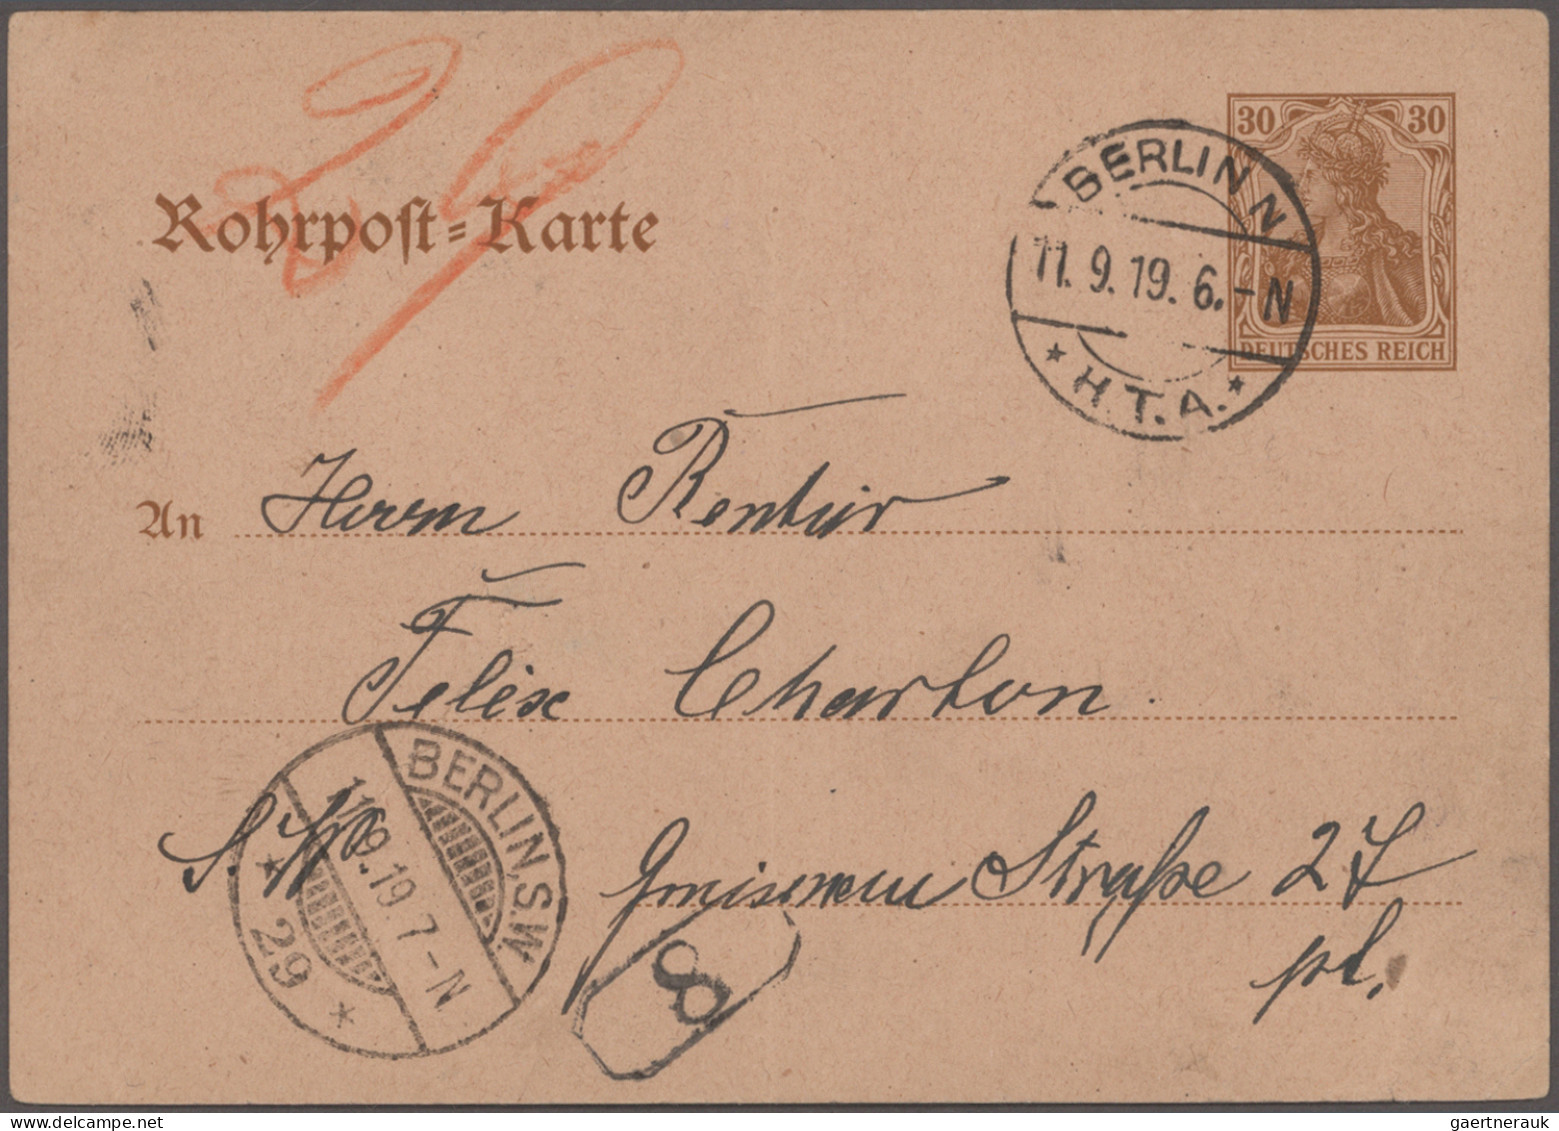 30 30
DEUTSCHES REICH
BERLIN N
11.9.19. 6.-N
* H.T.A. *
Rohrpost-Karte
An Herrn Rentier
Felix Charton.
S.W. Gneisenau Straße 27
pl.
BERLIN, S.W.
11.9.19.7-N
* 29 *
8
gaertnerauk